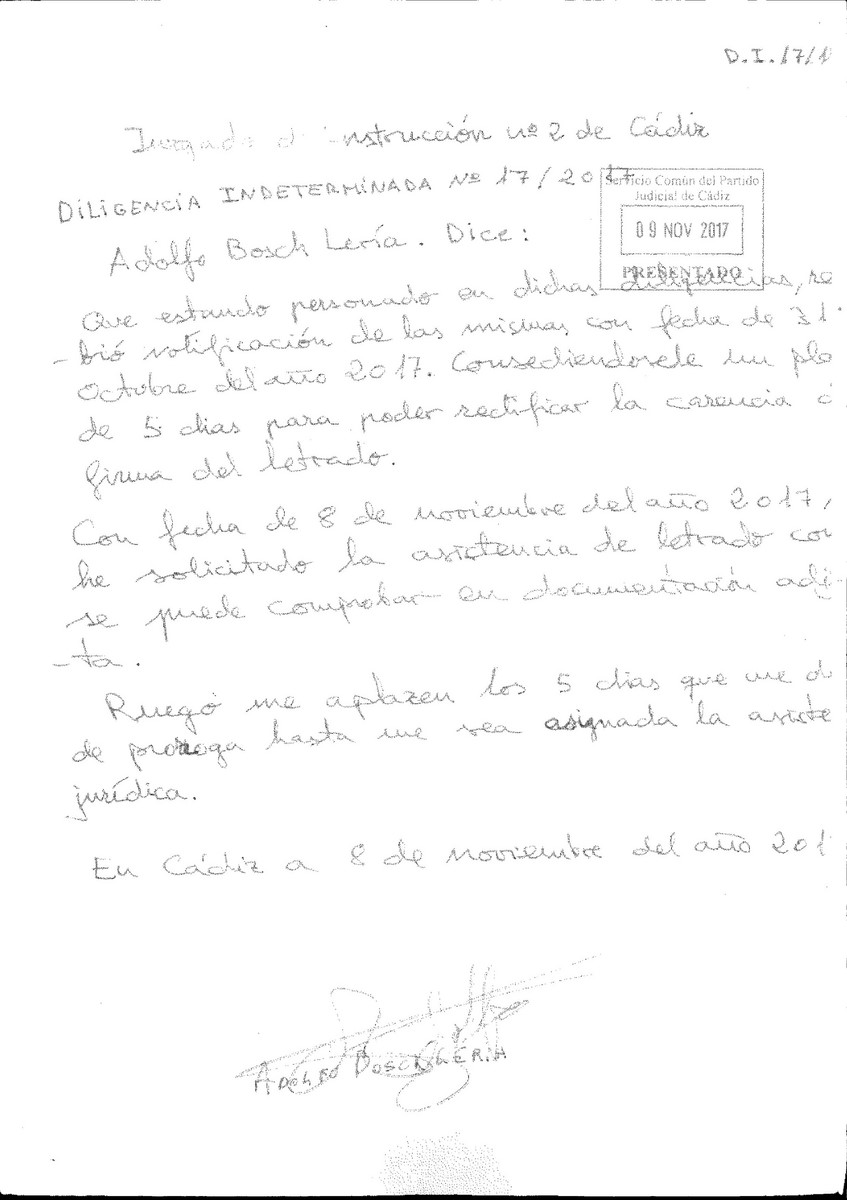 D.I. 17/1
Juzgado d instrucción nº 2 de Cádiz
DILIGENCIA INDETERMINADA Nº 17/2017
Servicio Común del Partido
Judicial de Cádiz
09 NOV 2017
PRESENTADO
Adolfo Bosch Lería. Dice:
Que estando personado en dichas diligencias, re
-bió notificación de las mismas con fecha de 31
Octubre del año 2017. Consediendosele un pla
de 5 dias para poder rectificar la carencia d
firma del letrado.
Con fecha de 8 de noviembre del año 2017,
he solicitado la asistencia de letrado con
se puede comprobar en documentación adj
-ta.
Ruego me aplazen los 5 dias que me d
de prorroga hasta me sea asignada la asiste
jurídica.
En Cádiz a 8 de noviembre del año 201
ADOLFO BOSCH LERIA